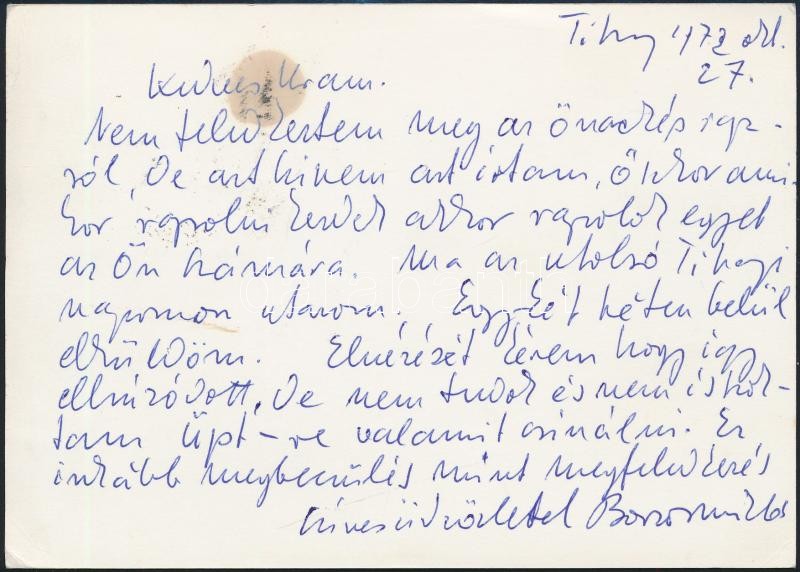 Tihany 1972 okt.
27.
Kedves Uram.
Nem feledkeztem meg az Ön adrés
ról, De azt hinem azt írtam, ősszor ami-
kor rajzolni kezdek akkor rajzolok egyet
az Ön számára. Ma az utolsó Tihanyi
napomon utazom, Egy-két héten belül
elküldöm. Elnézését kérem hogy így
elhúzódott, De nem tudok és nem is akar-
tam Üpt-re valamit csinálni. Ez
inkább megbecsülés mint megfeledkezés
szíves üdvözlettel Borsos Miklós